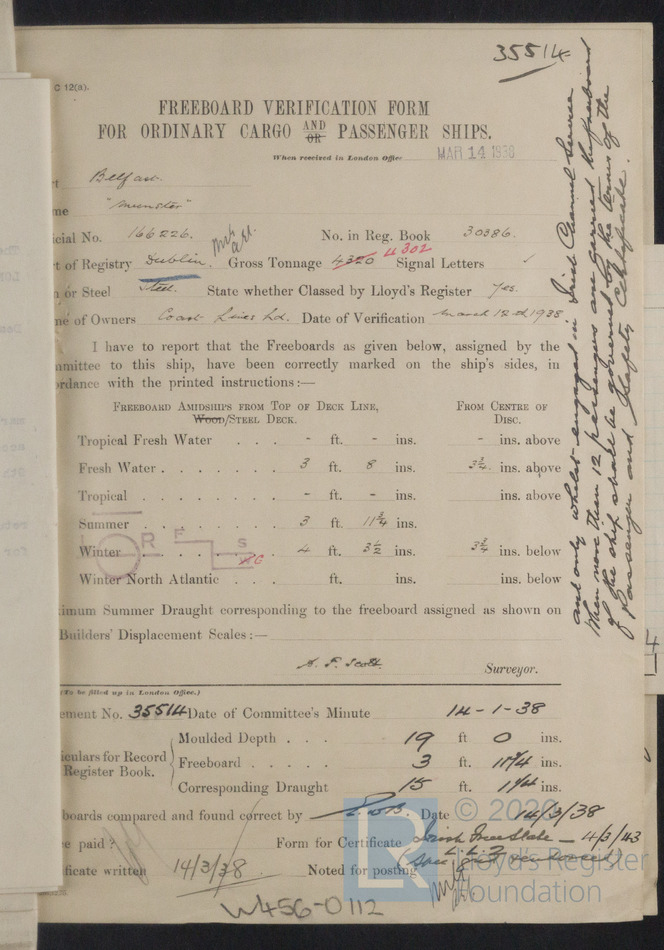 35514
C 12(a).
FREEBOARD VERIFICATION FORM
FOR ORDINARY CARGO AND OR PASSENGER SHIPS.
When received in London Office MAR 14 1938
Belfast
"Munster"
cial No. 166226. No. in Reg. Book 30386.
t of Registry Dublin. Gross Tonnage 4320 4302 Signal Letters
or Steel Steel. State whether Classed by Lloyd's Register Yes.
e of Owners Coast Lines Ld. Date of Verification March 12th 1938
I have to report that the Freeboards as given below, assigned by the
mmittee to this ship, have been correctly marked on the ship's sides, in
ordance with the printed instructions:—
Freeboard Amidships from Top of Deck Line, Wood/Steel Deck.
From Centre of Disc.
Tropical Fresh Water . . . - ft. - ins. - ins. above
Fresh Water . . . . . . . 3 ft. 8 ins. 3¾ ins. above
Tropical . . . . . . . . - ft. - ins. ins. above
Summer . . . . . . . . 3 ft. 11¾ ins.
Winter . . . . . . . . 4 ft. 3½ ins. 3¾ ins. below
R F S
Winter North Atlantic . . . ft. ins. ins. below
imum Summer Draught corresponding to the freeboard assigned as shown on
Builders' Displacement Scales:—
A. F. Scott. Surveyor.
(To be filled up in London Office.)
ement No. 35514 Date of Committee's Minute 14-1-38
iculars for Record
Register Book.
Moulded Depth . . . 19 ft 0 ins.
Freeboard . . . . . 3 ft. ins.
Corresponding Draught 15 ft. ins.
boards compared and found correct by Date 14/3/38
e paid? Form for Certificate Irish Free State — 4/3/43
ficate written 14/3/38 Noted for posting
W456-0112
and only whilst engaged in Irish Channel Service
When more than 12 passengers are carried the freeboard
of the ship shall be governed by the terms of the
Passenger and Safety Certificate.
© 2020
Lloyd's Register
Foundation